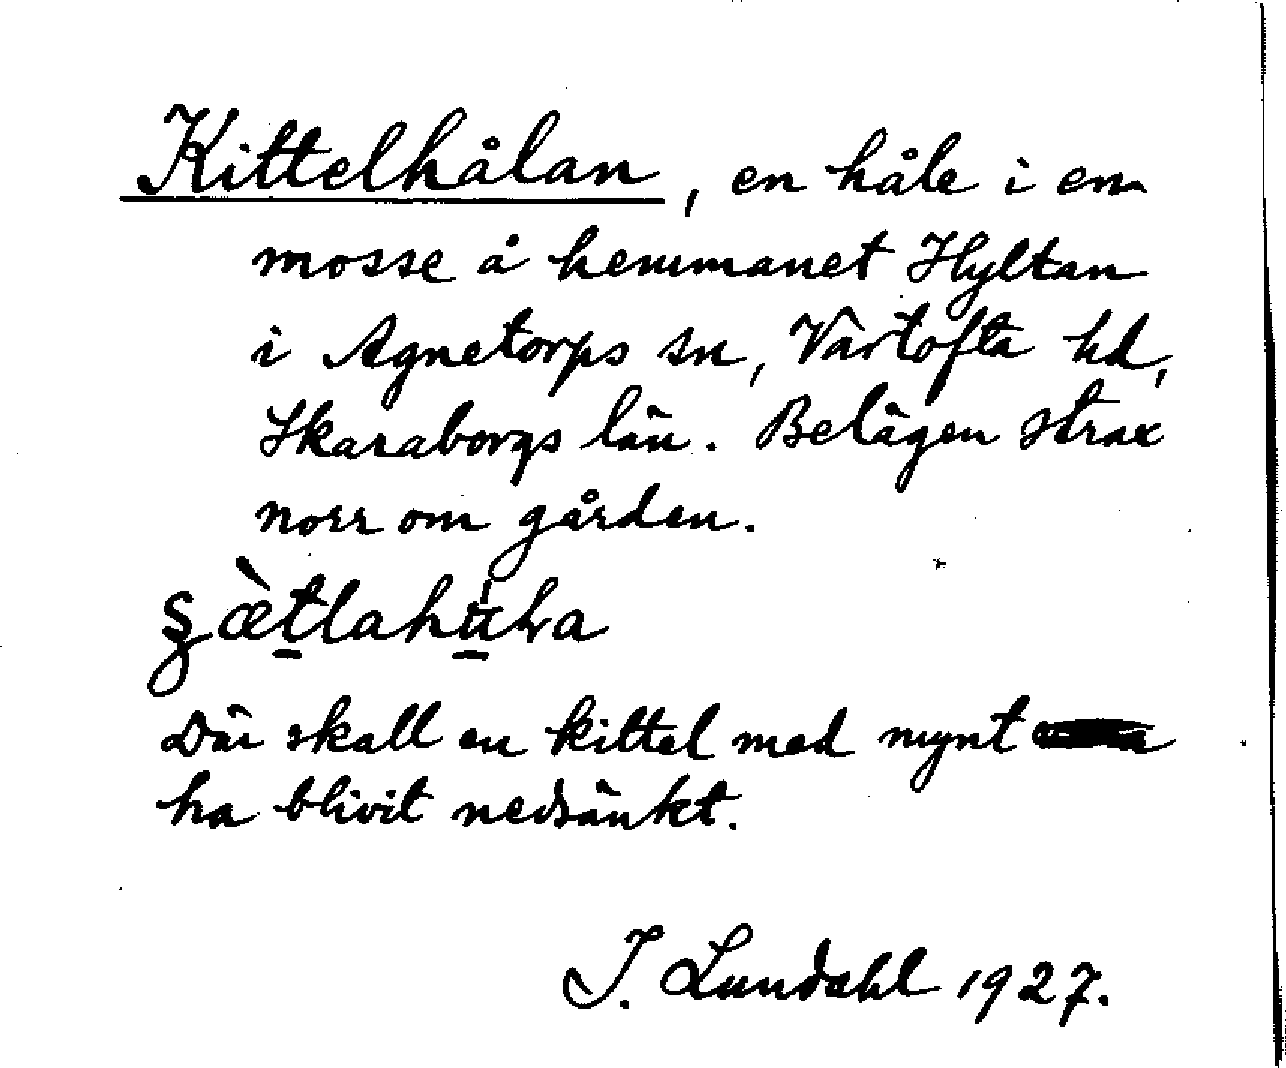 Kittelhålan, en håle i en
mosse å hemmanet Hyltan
i Agnetorps sn, Vartofta hd,
Skaraborgs län. Belägen strax
norr om gården.
Där skall en kittel med mynt
ha blivit nedsänkt.
I. Lundahl 1927.